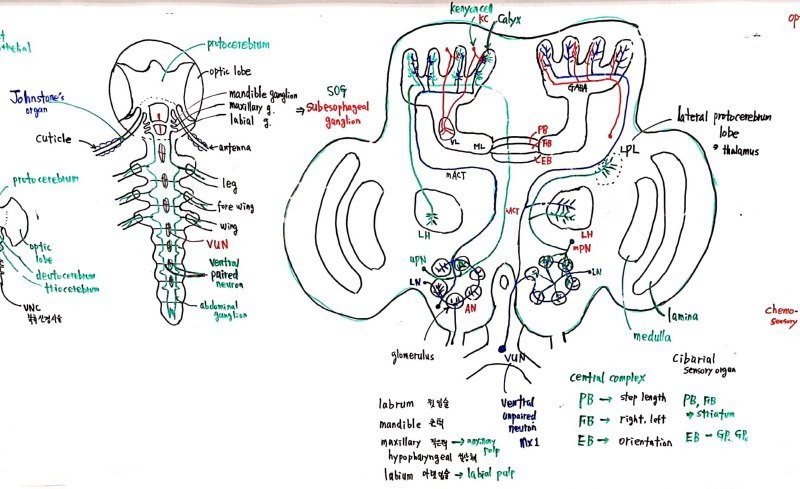 protocerebrum
optic lobe
mandible ganglion
maxillary g.
labial g.
Johnstone's
organ
cuticle
antenna
leg
fore wing
wing
VUN
ventral
paired
neuron
abdominal
ganglion
protocerebrum
optic
lobe
deutocerebrum
tritocerebrum
VNC
SOG
⇒ Subesophageal
ganglion
kenyon cell
KC
Calyx
GABA
PB
FB
EB
VL
ML
mACT
LPL
lateral protocerebrum
lobe
thalamus
LH
ACT
LH
mPN
LN
LN
AN
glomerulus
VUN
lamina
medulla
op
chemo-
sensory
Cibarial
sensory organ
labrum 윗입술
mandible 큰턱
maxillary 작은턱 → maxillary
palp
hypopharyngeal
labium 아랫입술 → labial palp
ventral
unpaired
neuron
mx1
central complex
PB → step length
FB → right, left
EB → orientation
PB, FB
⇒ striatum
EB –